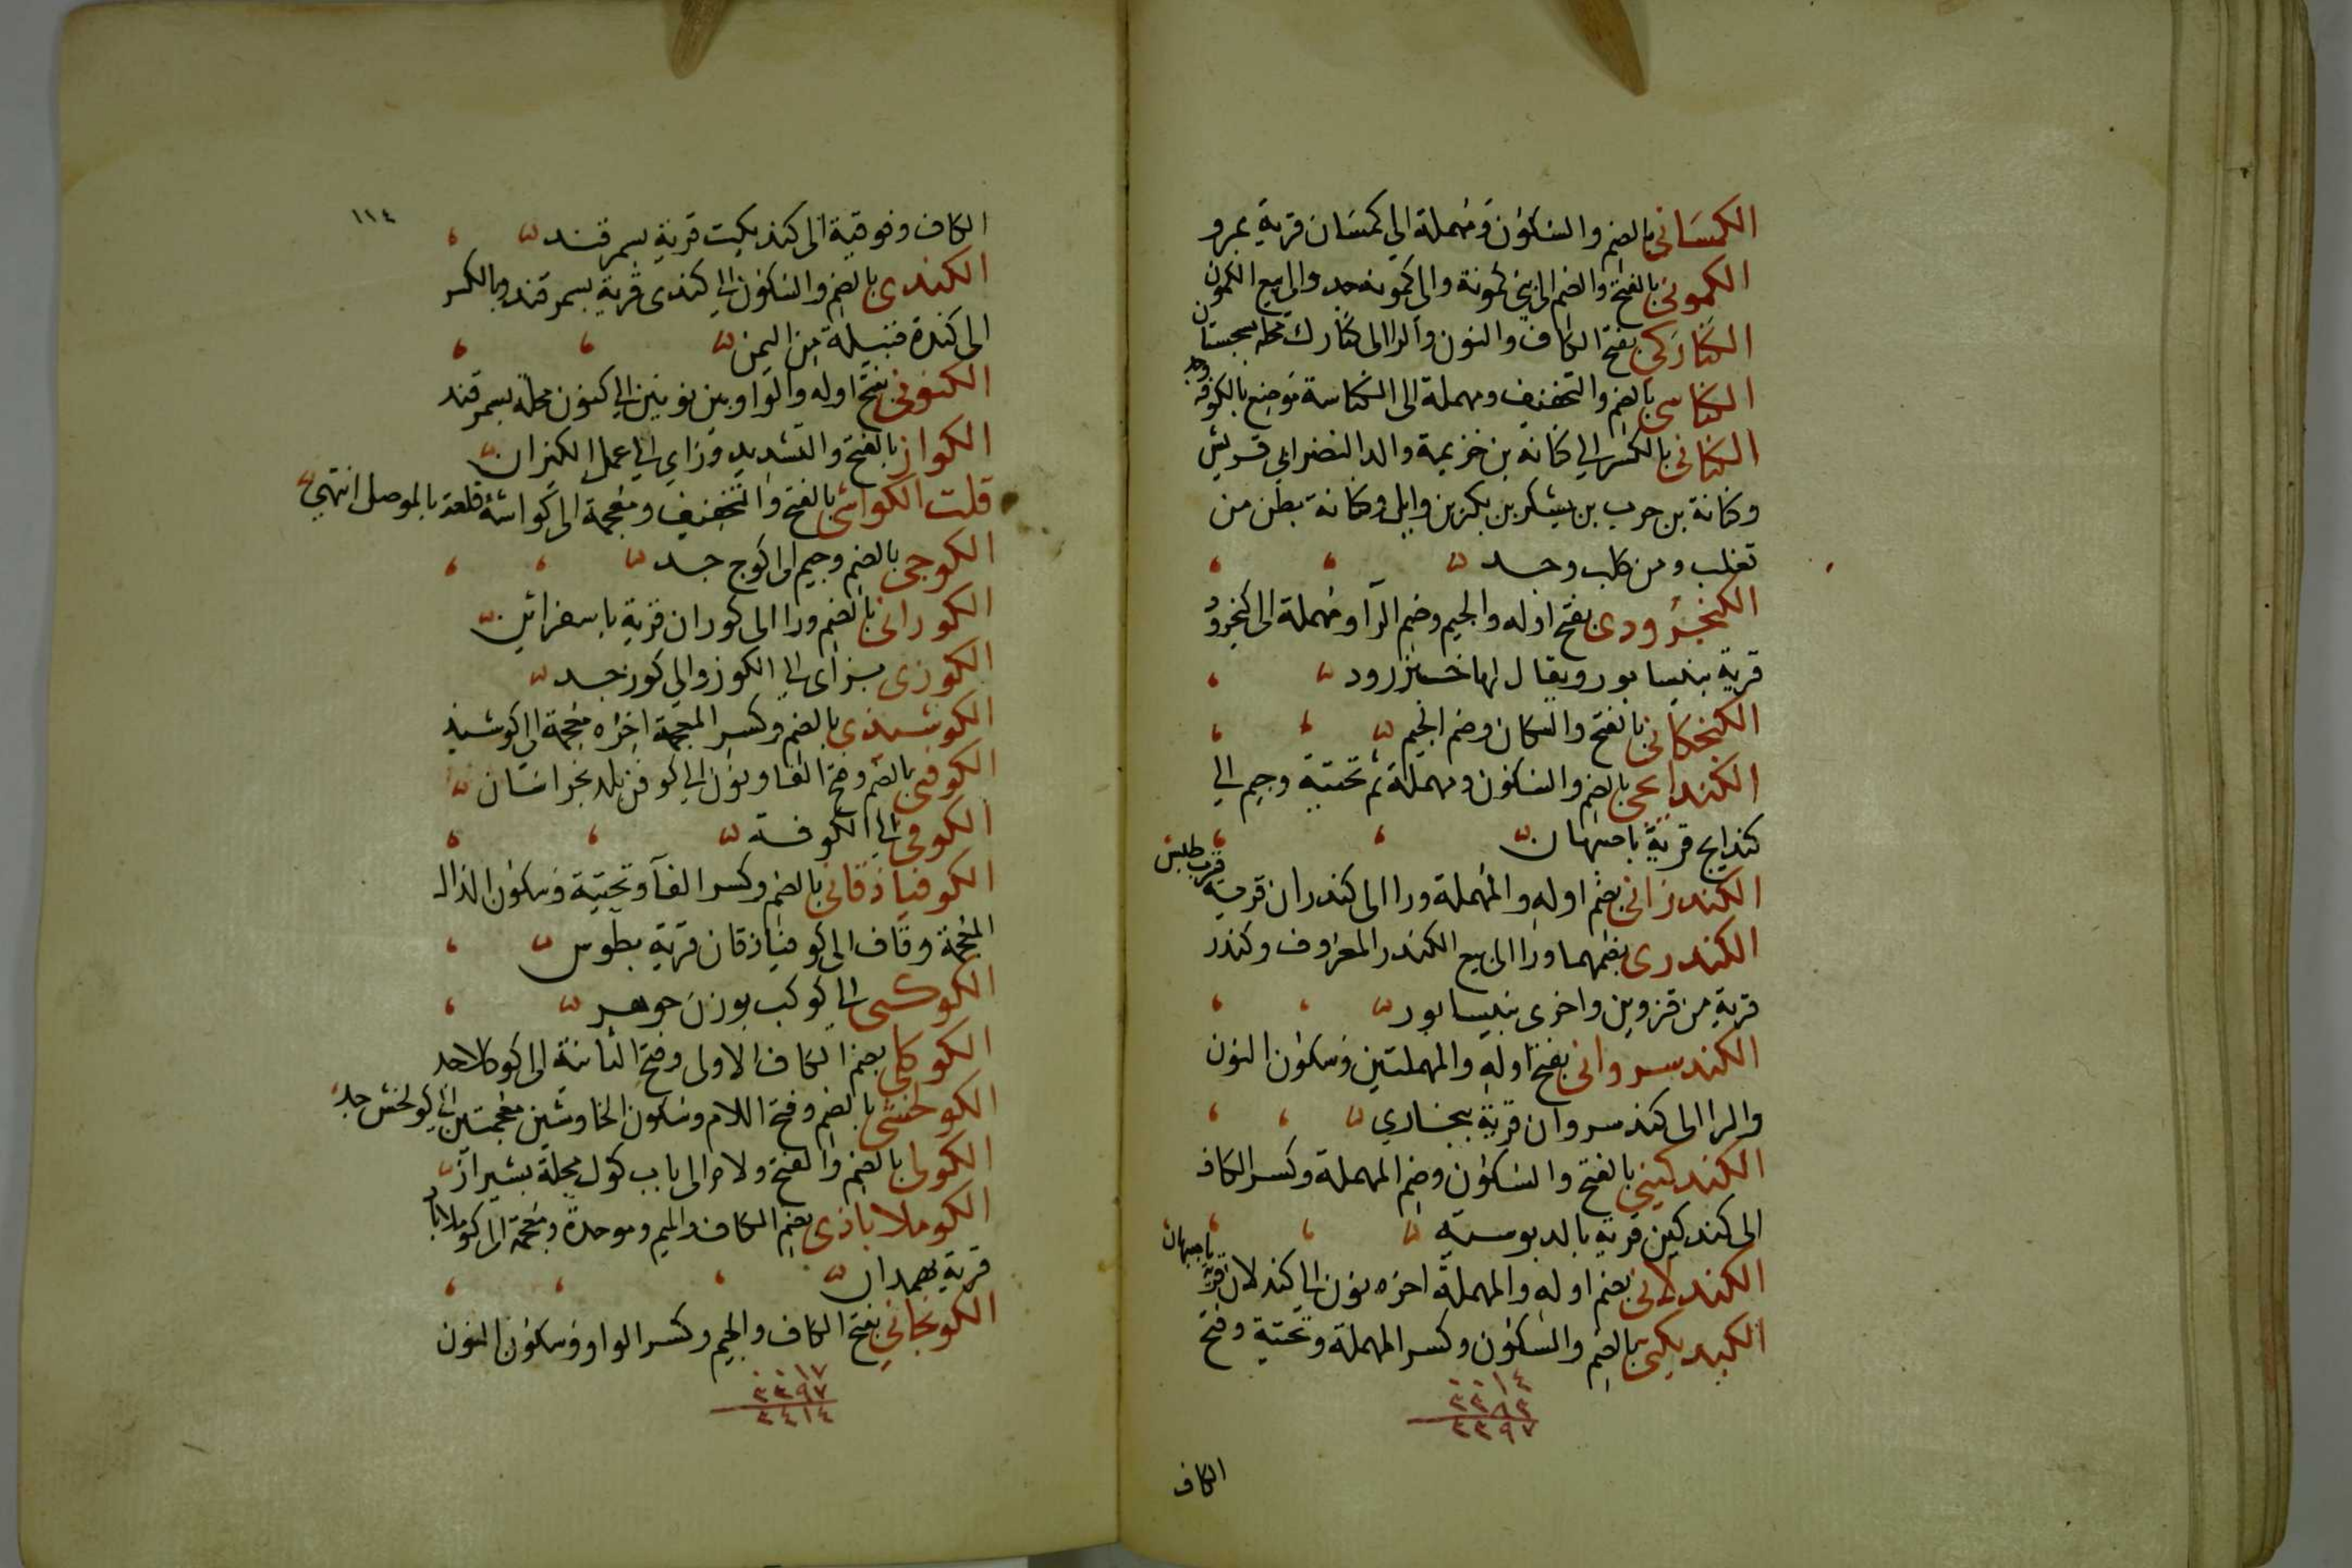 الكمساني بالضم والسكون ومهملة الي كمسان قرية بمرو
الكموني بالفتح والضم الى بني كمونة والي كمونة جد والي بيع الكمون
الكناركي بفتح الكاف والنون والرا الى كنارك محلة بسجستان
الكناسي بالضم والتخفيف ومهملة الى الكناسة موضع بالكوفة وجد
الكناني بالكسر الي كنانة بن خزيمة والد النضر ابي قريش
وكنانة بن حرب بن يشكر بن بكر بن وايل وكنانة بطن من
تغلب ومن كلب وجد
الكنجرودى بفتح اوله والجيم وضم الرآ ومهملة الى كنجرود
قرية بنيسابور ويقال لها خنزرود
الكنجكاني بالفتح والسكان وضم الجيم
الكندايجي بالضم والسكون ومهملة ثم تحتية وجيم الي
كندايج قرية باصبهان
الكندراني بضم اوله والمهملة ورا الى كندران قرية قرب طبس
الكندرى بضمهما ورا الى بيع الكندر المعروف وكندر
قرية من قزوين واخرى بنيسابور
الكندسروانى بفتح اوله والمهملتين وسكون النون
والرا الى كندسروان قرية ببخاري
الكندكيني بالفتح والسكون وضم المهملة وكسر الكاف
الى كندكين قرية بالدبوسية
الكندلاني بضم اوله والمهملة اخره نون الي كندلان قرية باصبهان
الكنديكتي بالضم والسكون وكسر المهملة وتحتية وفتح
٠٠١٤
٢٣٨٣
٢٣٩٧
الكاف
١١٤
الكاف وفوقية الى كنديكت قرية بسمرقند
الكندى بالضم والسكون الي كندى قرية بسمرقند وبالكسر
الى كندة قبيلة من اليمن
الكنونى بفتح اوله والواو بين نونين الي كنون محلة بسمرقند
الكواز بالفتح والتشديد وزاي الي عمل الكيزان
قلت الكواشي بالفتح والتخفيف ومعجمة الى كواشة قلعة بالموصل انتهى
الكوجي بالضم وجيم الى كوج جد
الكورانى بالضم ورا الى كوران قرية باسفرائين
الكوزى بزاى الي الكوز والي كوز جد
الكوشيذي بالضم وكسر المعجمة اخره معجمة الي كوشيذ
الكوفني بالضم وفتح الفا ونون الي كوفن بلد بخراسان
الكوفي الي الكوفة
الكوفياذقاني بالضم وكسر الفآ وتحتية وسكون الذال
المعجمة وقاف الى كوفياذقان قرية بطوس
الكوكبي الي كوكب بوزن جوهر
الكوكلي بضم الكاف الاولى وفتح الثانية الى كوكلا جد
الكولخشي بالضم وفتح اللام وسكون الخا وشين معجمتين الي كولخش جد
الكولى بالضم والفتح ولام الى باب كول محلة بشيراز
الكوملاباذى بضم الكاف والميم وموحدة ومعجمة الى كوملاباذ
قرية بهمدان
الكونجاني بفتح الكاف والجيم وكسر الواو وسكون النون
٠٠١٧
٢٣٩٧
٢٤١٤